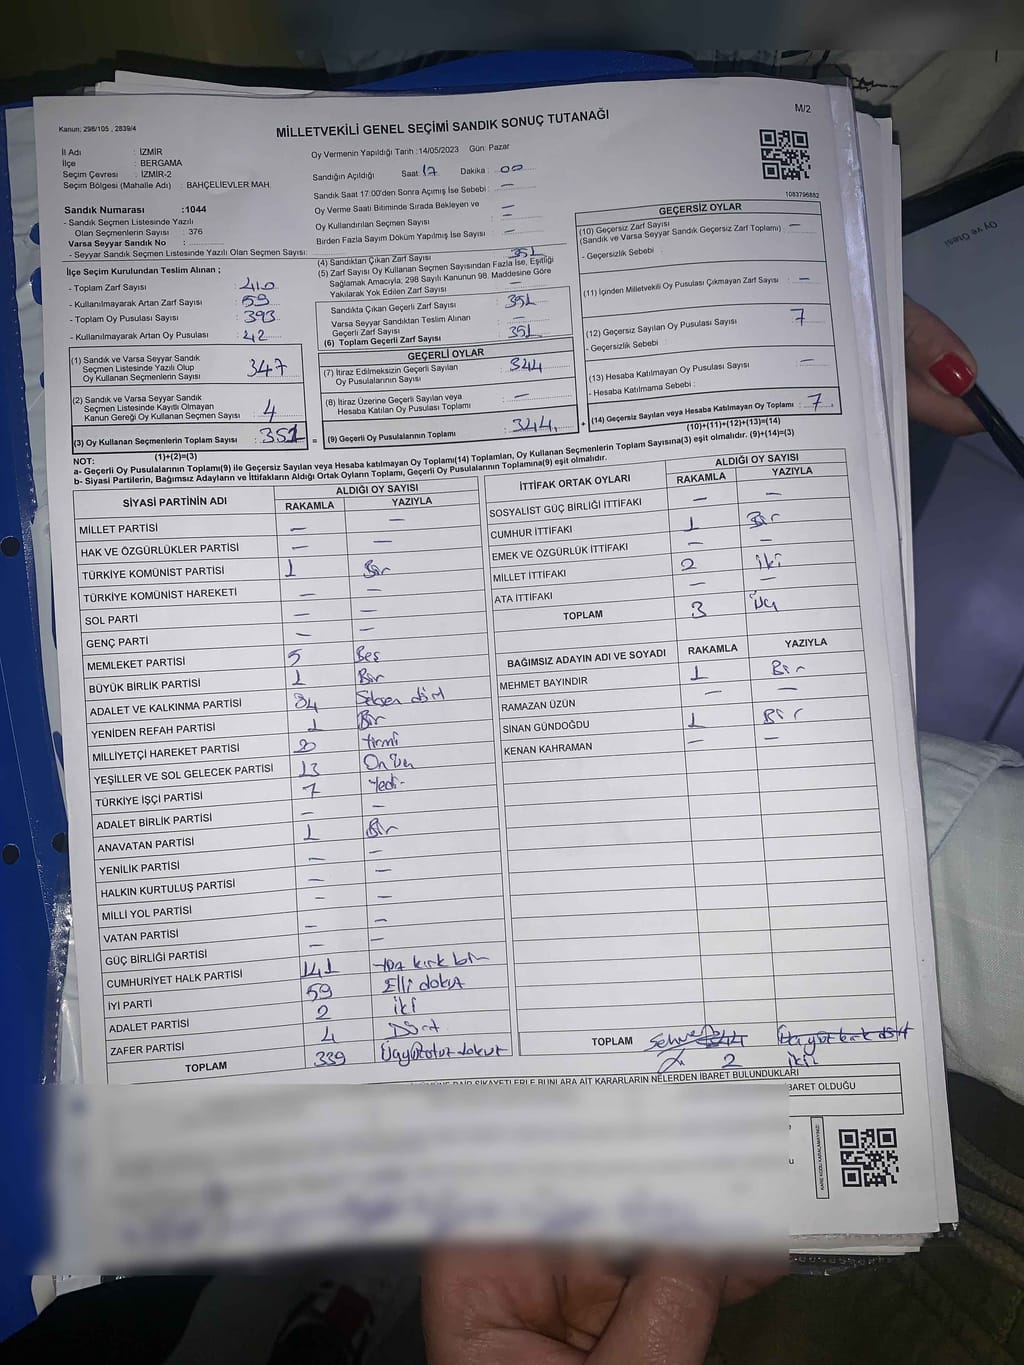 Kanun; 298/105 , 2839/4
M/2
MİLLETVEKİLİ GENEL SEÇİMİ SANDIK SONUÇ TUTANAĞI
İl Adı : İZMİR
İlçe : BERGAMA
Seçim Çevresi : İZMİR-2
Seçim Bölgesi (Mahalle Adı) : BAHÇELİEVLER MAH.
Sandık Numarası :1044
- Sandık Seçmen Listesinde Yazılı
Olan Seçmenlerin Sayısı : 376
Varsa Seyyar Sandık No :
- Seyyar Sandık Seçmen Listesinde Yazılı Olan Seçmen Sayısı:
Oy Vermenin Yapıldığı Tarih :14/05/2023 Gün: Pazar
Sandığın Açıldığı Saat: 17 Dakika : 00
Sandık Saat 17:00'den Sonra Açımış İse Sebebi : —
Oy Verme Saati Bitiminde Sırada Bekleyen ve —
Oy Kullandırılan Seçmen Sayısı : —
Birden Fazla Sayım Döküm Yapılmış İse Sayısı : —
1083796882
İlçe Seçim Kurulundan Teslim Alınan ;
- Toplam Zarf Sayısı : 410
- Kullanılmayarak Artan Zarf Sayısı : 59
- Toplam Oy Pusulası Sayısı : 393
- Kullanılmayarak Artan Oy Pusulası : 42
(1) Sandık ve Varsa Seyyar Sandık
Seçmen Listesinde Yazılı Olup
Oy Kullanan Seçmenlerin Sayısı : 347
(2) Sandık ve Varsa Seyyar Sandık
Seçmen Listesinde Kayıtlı Olmayan
Kanun Gereği Oy Kullanan Seçmen Sayısı : 4
(3) Oy Kullanan Seçmenlerin Toplam Sayısı : 351
(1)+(2)=(3)
(4) Sandıktan Çıkan Zarf Sayısı : 351
(5) Zarf Sayısı Oy Kullanan Seçmen Sayısından Fazla İse, Eşitliği
Sağlamak Amacıyla, 298 Sayılı Kanunun 98. Maddesine Göre
Yakılarak Yok Edilen Zarf Sayısı : —
Sandıkta Çıkan Geçerli Zarf Sayısı : 351
Varsa Seyyar Sandıktan Teslim Alınan
Geçerli Zarf Sayısı : —
(6) Toplam Geçerli Zarf Sayısı : 351
GEÇERLİ OYLAR
(7) İtiraz Edilmeksizin Geçerli Sayılan
Oy Pusulalarının Sayısı : 344
(8) İtiraz Üzerine Geçerli Sayılan veya
Hesaba Katılan Oy Pusulası Toplamı : —
= (9) Geçerli Oy Pusulalarının Toplamı : 344
GEÇERSİZ OYLAR
(10) Geçersiz Zarf Sayısı : —
(Sandık ve Varsa Seyyar Sandık Geçersiz Zarf Toplamı)
- Geçersizlik Sebebi :
(11) İçinden Milletvekili Oy Pusulası Çıkmayan Zarf Sayısı : —
(12) Geçersiz Sayılan Oy Pusulası Sayısı : 7
- Geçersizlik Sebebi :
(13) Hesaba Katılmayan Oy Pusulası Sayısı : —
- Hesaba Katılmama Sebebi :
+ (14) Geçersiz Sayılan veya Hesaba Katılmayan Oy Toplamı : 7
(10)+(11)+(12)+(13)=(14)
NOT:
a- Geçerli Oy Pusulalarının Toplamı(9) ile Geçersiz Sayılan veya Hesaba katılmayan Oy Toplamı(14) Toplamları, Oy Kullanan Seçmenlerin Toplam Sayısına(3) eşit olmalıdır. (9)+(14)=(3)
b- Siyasi Partilerin, Bağımsız Adayların ve İttifakların Aldığı Ortak Oyların Toplamı, Geçerli Oy Pusulalarının Toplamına(9) eşit olmalıdır.
SİYASİ PARTİNİN ADI ALDIĞI OY SAYISI
RAKAMLA YAZIYLA
MİLLET PARTİSİ — —
HAK VE ÖZGÜRLÜKLER PARTİSİ — —
TÜRKİYE KOMÜNİST PARTİSİ 1 Bir
TÜRKİYE KOMÜNİST HAREKETİ — —
SOL PARTİ — —
GENÇ PARTİ — —
MEMLEKET PARTİSİ 5 Beş
BÜYÜK BİRLİK PARTİSİ 1 Bir
ADALET VE KALKINMA PARTİSİ 84 Seksen dört
YENİDEN REFAH PARTİSİ 1 Bir
MİLLİYETÇİ HAREKET PARTİSİ 20 Yirmi
YEŞİLLER VE SOL GELECEK PARTİSİ 13 On üç
TÜRKİYE İŞÇİ PARTİSİ 7 Yedi
ADALET BİRLİK PARTİSİ — —
ANAVATAN PARTİSİ 1 Bir
YENİLİK PARTİSİ — —
HALKIN KURTULUŞ PARTİSİ — —
MİLLİ YOL PARTİSİ — —
VATAN PARTİSİ — —
GÜÇ BİRLİĞİ PARTİSİ — —
CUMHURİYET HALK PARTİSİ 141 Yüz kırk bir
İYİ PARTİ 59 Elli dokuz
ADALET PARTİSİ 2 iki
ZAFER PARTİSİ 4 Dört
TOPLAM 339 Üçyüzotuz dokuz
İTTİFAK ORTAK OYLARI ALDIĞI OY SAYISI
RAKAMLA YAZIYLA
SOSYALİST GÜÇ BİRLİĞİ İTTİFAKI — —
CUMHUR İTTİFAKI 1 Bir
EMEK VE ÖZGÜRLÜK İTTİFAKI — —
MİLLET İTTİFAKI 2 iki
ATA İTTİFAKI — —
TOPLAM 3 Üç
BAĞIMSIZ ADAYIN ADI VE SOYADI RAKAMLA YAZIYLA
MEHMET BAYINDIR 1 Bir
RAMAZAN ÜZÜN — —
SİNAN GÜNDOĞDU 1 Bir
KENAN KAHRAMAN — —
TOPLAM 344 Üçyüz kırk dört
2 iki
BARET OLDUĞU
KARE KODU KARALAMAYINIZ!
Oy ve Ötesi